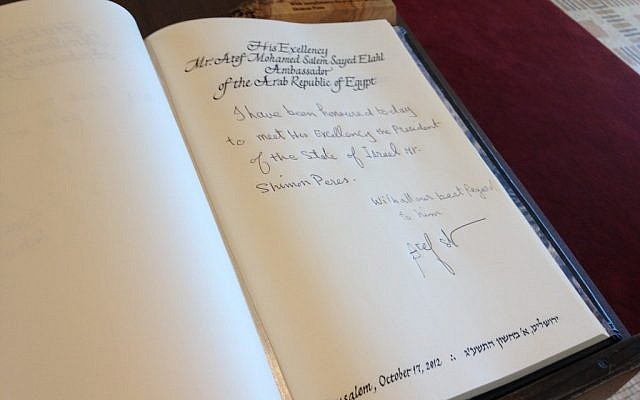 His Exellency
Mr. Atef Mohamed Salem Sayed Elahl
Ambassador
of the Arab Republic of Egypt
I have been honoured to day
to meet His Excellency the President
of the State of Israel Mr.
Shimon Peres.
With all our best Regard
to him
Atef
salem, October 17, 2012 ∴ ירושלים, א' בחשון התשע"ג